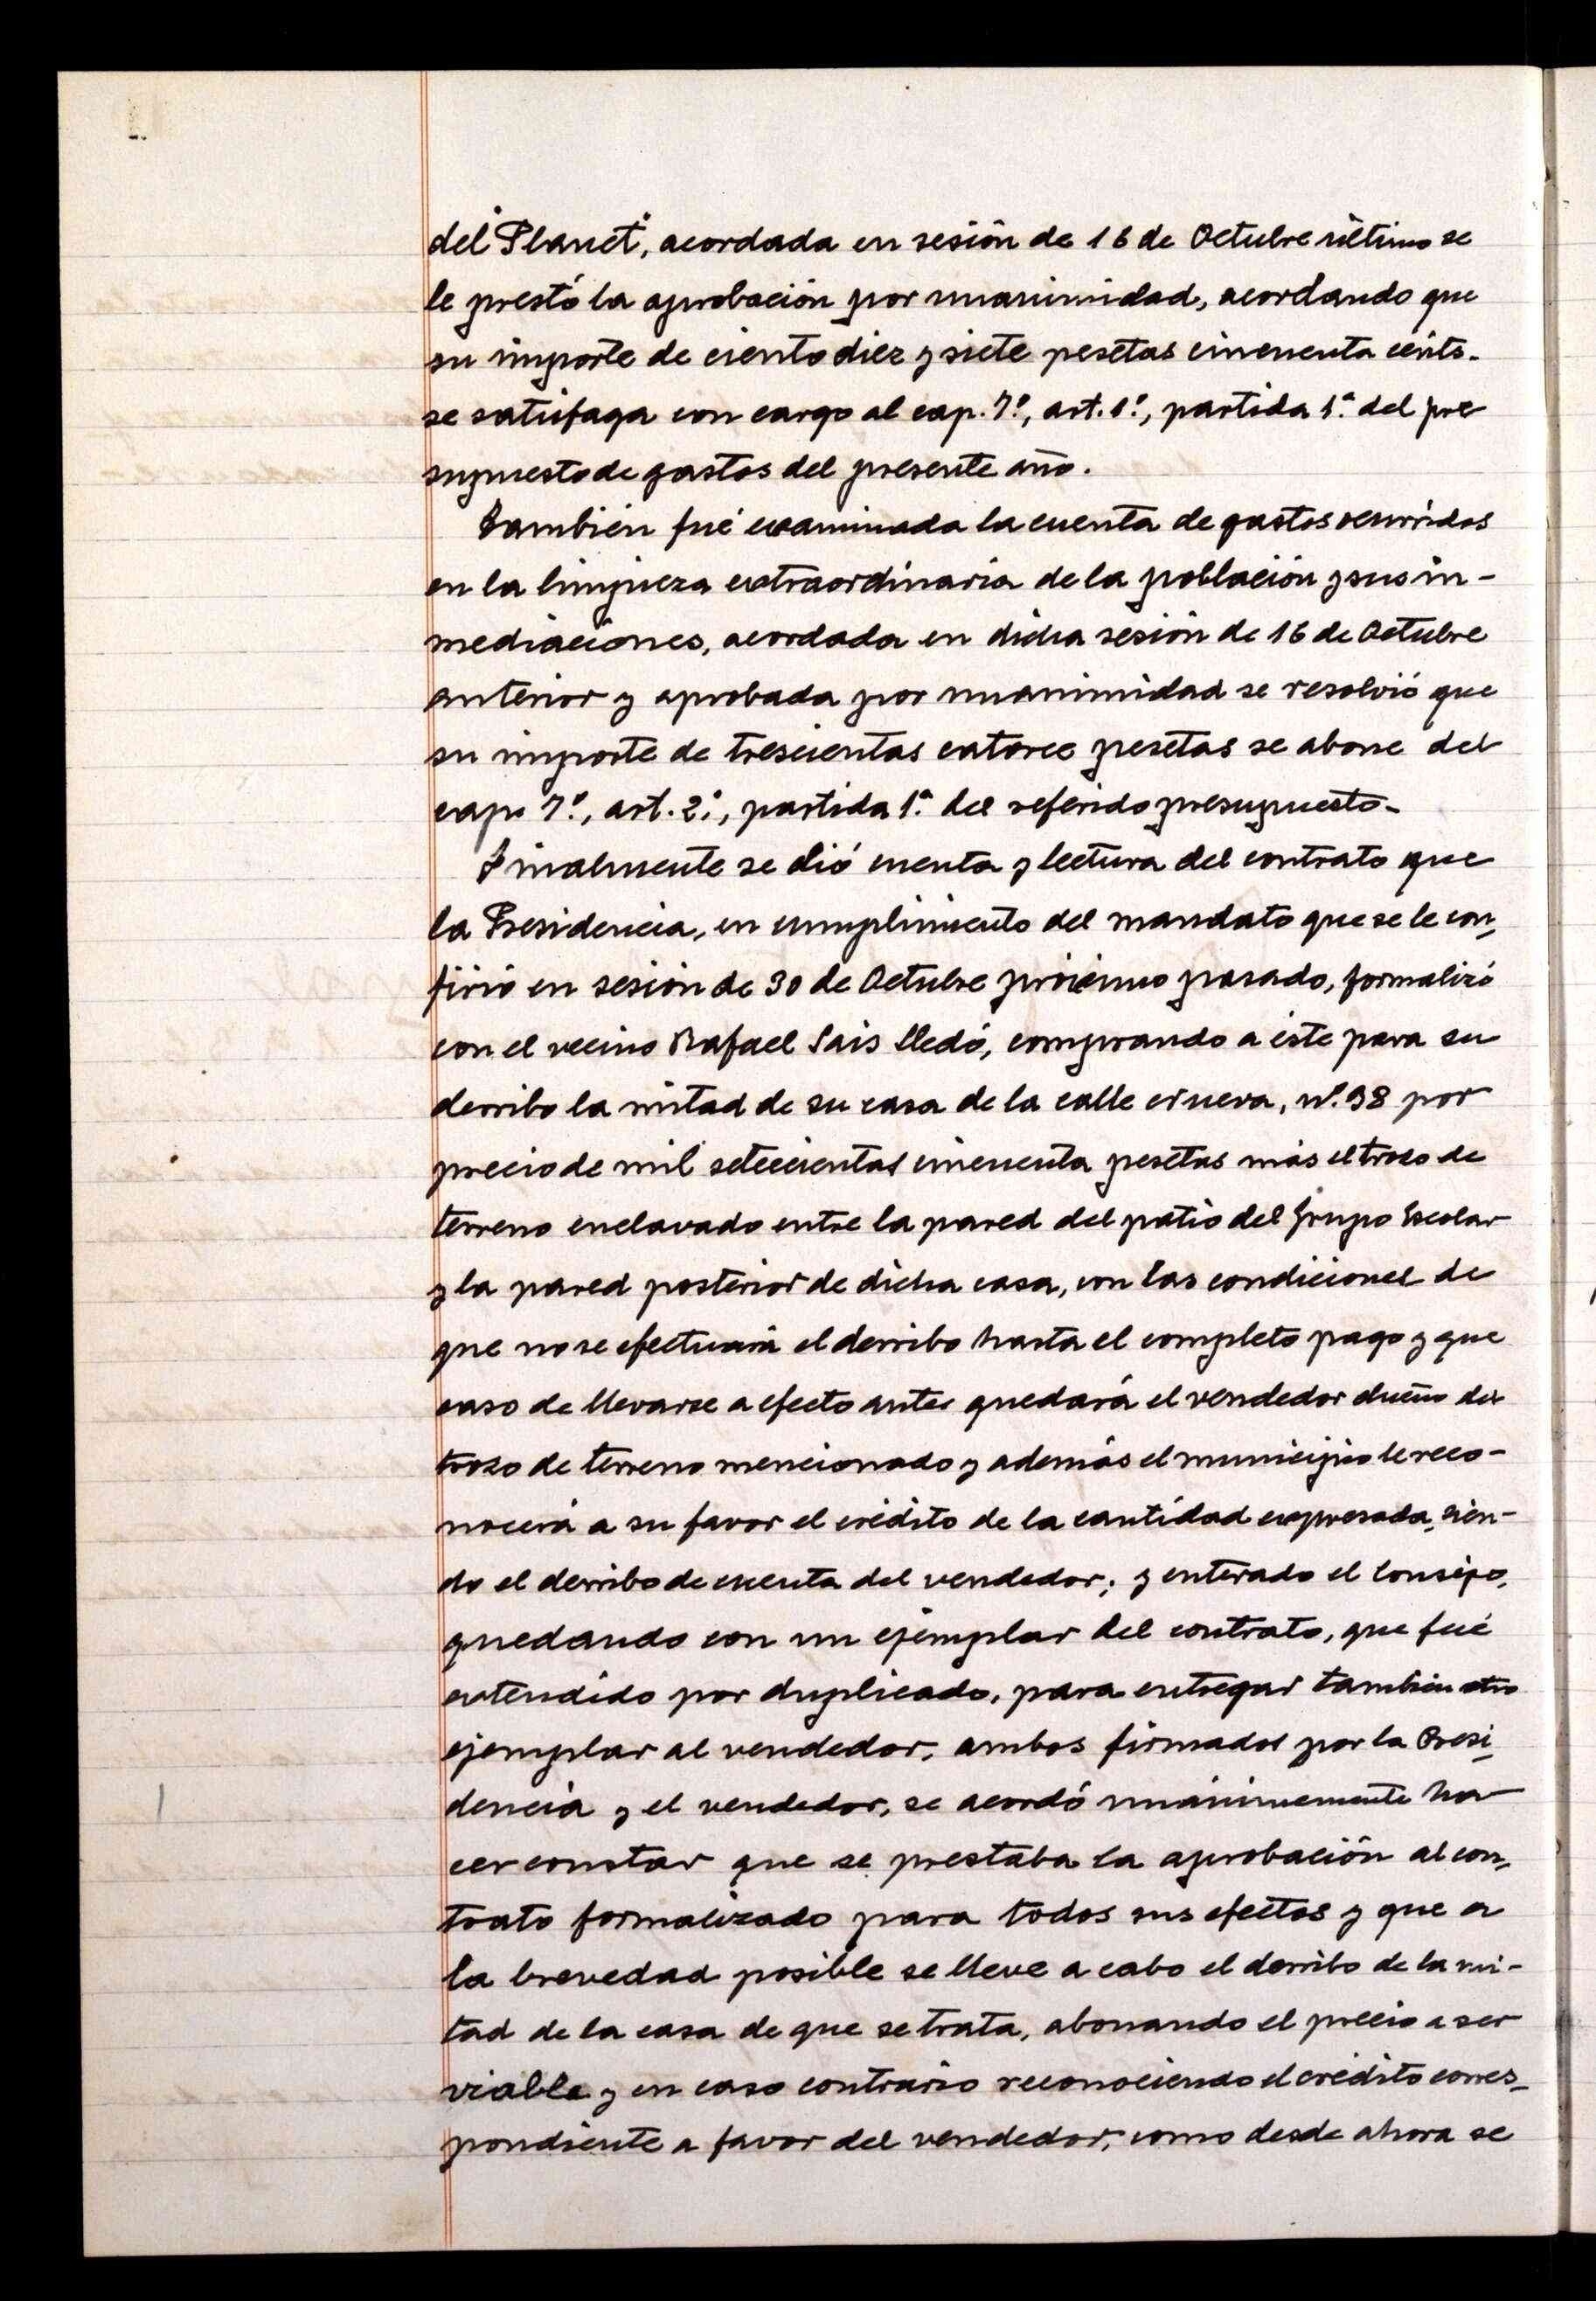 del "Planet", acordada en sesión de 16 de Octubre último se
le prestó la aprobación por unanimidad, acordando que
su importe de ciento diez y siete pesetas cincuenta cénts.
se satisfaga con cargo al cap. 7º, art. 1º, partida 1ª del pre
supuesto de gastos del presente año.
También fué examinada la cuenta de gastos ocurridos
en la limpieza extraordinaria de la población y sus in-
mediaciones, acordada en dicha sesión de 16 de Octubre
anterior y aprobada por unanimidad se resolvió que
su importe de trescientas catorce pesetas se abone del
cap. 7º, art. 2º, partida 1ª del referido presupuesto.
Finalmente se dió cuenta y lectura del contrato que
la Presidencia, en cumplimiento del mandato que se le con-
firió en sesión de 30 de Octubre próximo pasado, formalizó
con el vecino Rafael Sais Lledó, comprando a éste para su
derribo la mitad de su casa de la calle Nueva, nº. 38 por
precio de mil setecientas cincuenta pesetas más el trozo de
terreno enclavado entre la pared del patio del Grupo Escolar
y la pared posterior de dicha casa, con las condiciones de
que no se efectuará el derribo hasta el completo pago y que
caso de llevarse a efecto antes quedará el vendedor dueño del
trozo de terreno mencionado y además el municipio le reco-
nocerá a su favor el crédito de la cantidad expresada, sien-
do el derribo de cuenta del vendedor; y enterado el Consejo,
quedando con un ejemplar del contrato, que fué
extendido por duplicado, para entregar también otro
ejemplar al vendedor, ambos firmados por la Presi-
dencia y el vendedor, se acordó unánimemente ha
cer constar que se prestaba la aprobación al con-
trato formalizado para todos sus efectos y que a
la brevedad posible se lleve a cabo el derribo de la mi-
tad de la casa de que se trata, abonando el precio a ser
viable y en caso contrario reconociendo el crédito corres-
pondiente a favor del vendedor, como desde ahora se